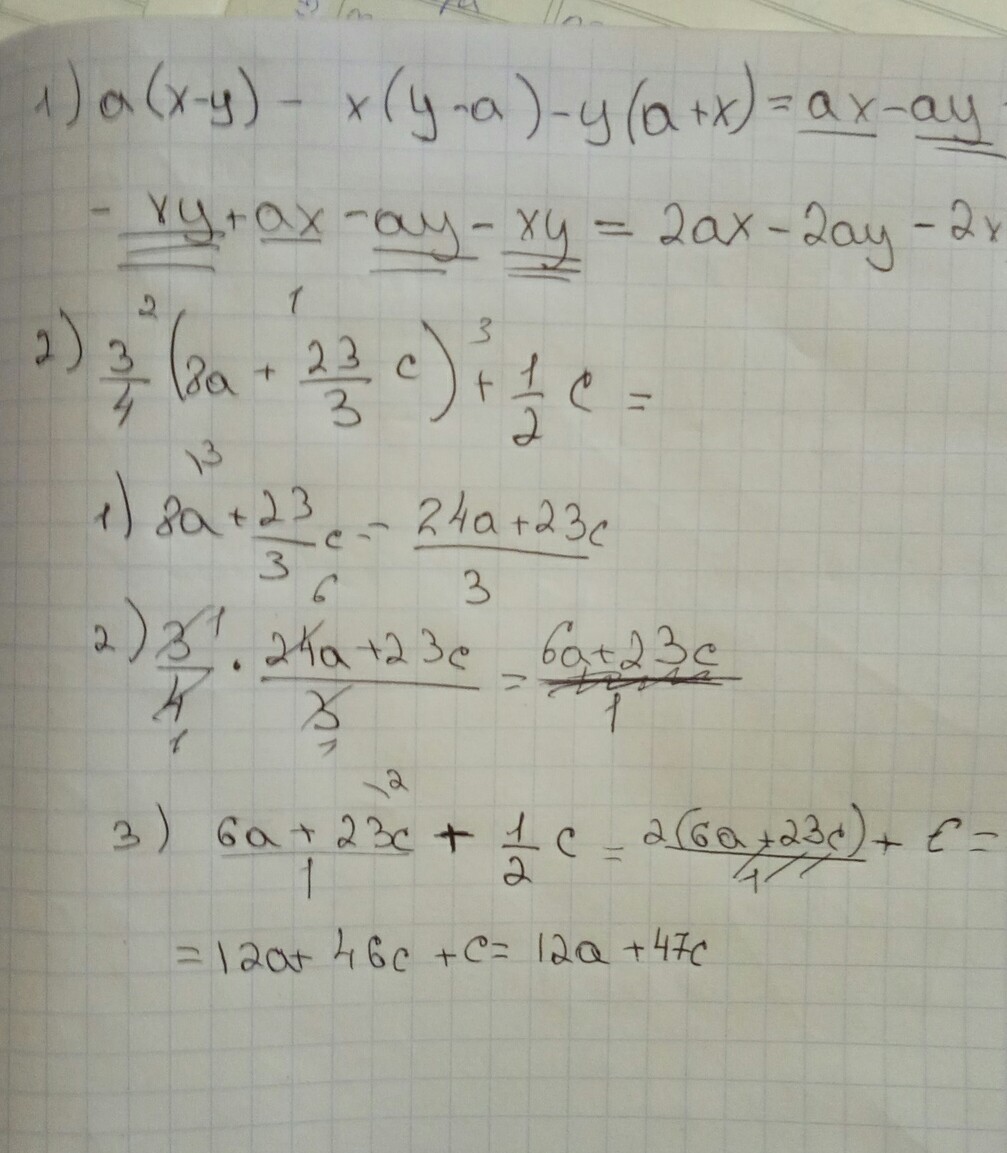 1) a(x-y) - x(y-a)-y(a+x)=ax-ay
- xy+ax-ay-xy = 2ax-2ay-2x
2) 3/4 (8a + 23/3 c) + 1/2 c =
2 1 3
1) 8a + 23/3 c = (24a+23c)/3
\3
2) 3/4 · (24a+23c)/3 = (6a+23c)/1
1 6 1 1
3) (6a+23c)/1 + 1/2 c = 2(6a+23c)/1 + c =
\2
=12a+46c+c=12a+47c